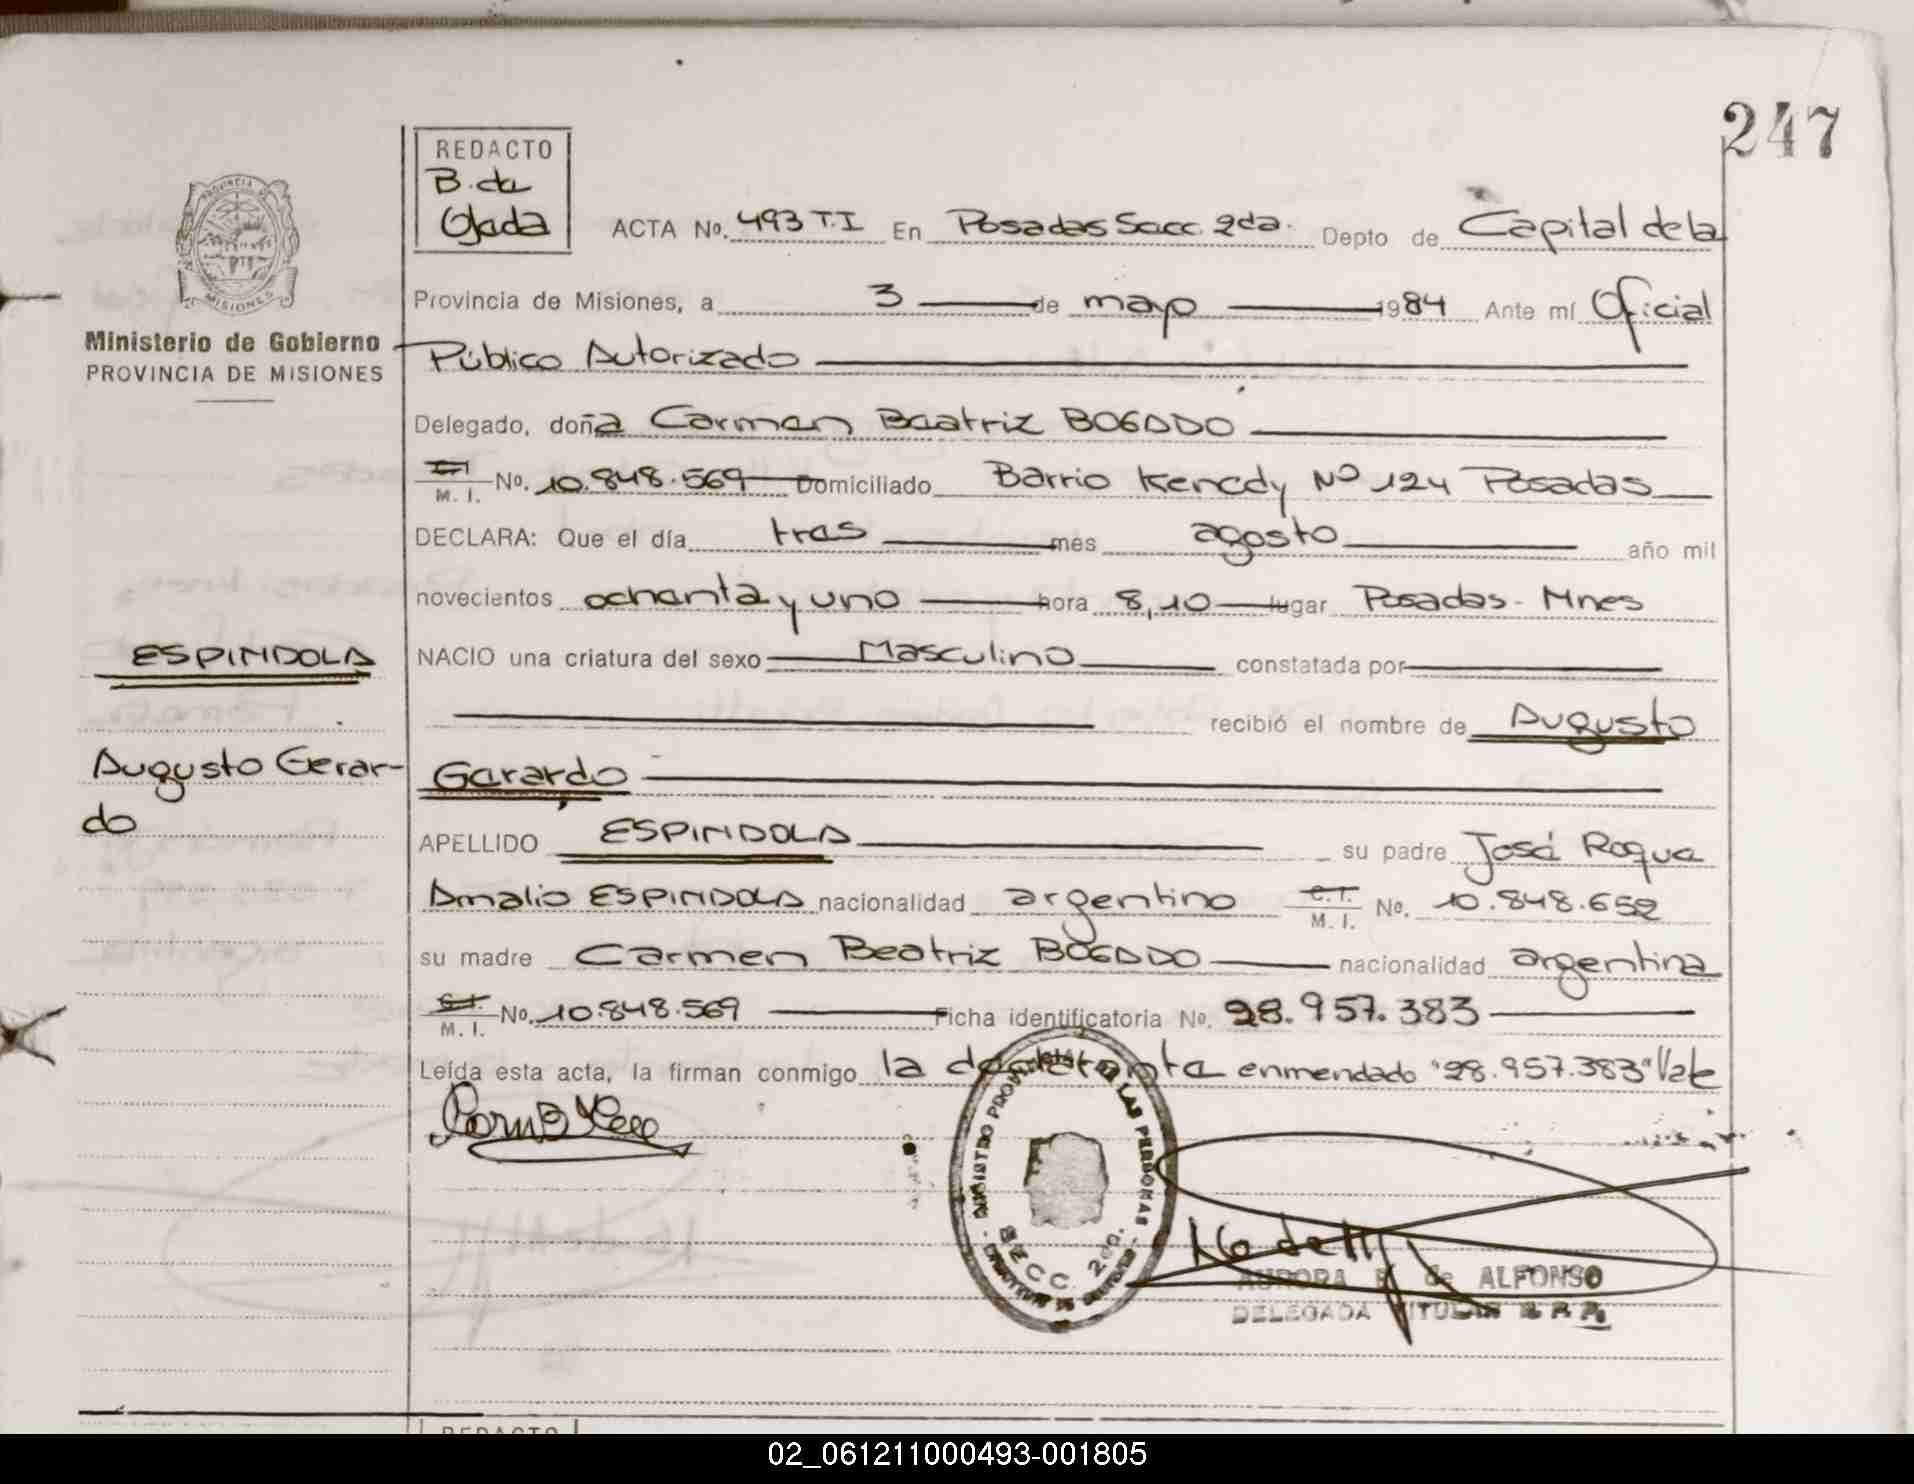 247
REDACTO
B. de
Ojeda
ACTA No. 493 T.I En Posadas Secc. 2da. Depto de Capital de la
PROVINCIA DE
MISIONES
Ministerio de Gobierno
PROVINCIA DE MISIONES
Provincia de Misiones, a 3 de mayo 1984 Ante mí Oficial
Público Autorizado
Delegado, doña Carmen Beatriz BOGADO
C.I. M. I. No. 10.848.569 Domiciliado Barrio Kenedy Nº 124 Posadas
DECLARA: Que el día tres mes agosto año mil
novecientos ochenta y uno hora 8,10 lugar Posadas - Mnes
ESPINDOLA
NACIO una criatura del sexo Masculino constatada por
recibió el nombre de Augusto
Augusto Gerar-
do
Gerardo
APELLIDO ESPINDOLA su padre José Roque
Amalio ESPINDOLA nacionalidad argentino C.I. M. I. No. 10.848.652
su madre Carmen Beatriz BOGADO nacionalidad argentina
C.I. M. I. No. 10.848.569 Ficha identificatoria No. 28.957.383
Leída esta acta, la firman conmigo la declarante enmendado "28.957.383" Vale
REGISTRO PROVINCIAL DE LAS PERSONAS
SECC. 2da.
AURORA de ALFONSO
DELEGADA TITULAR R. P. P.
REDACTO
02_061211000493-001805